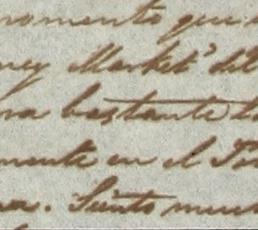 momento que
ney Market" del
na bastante
mente en el
na. Siento much